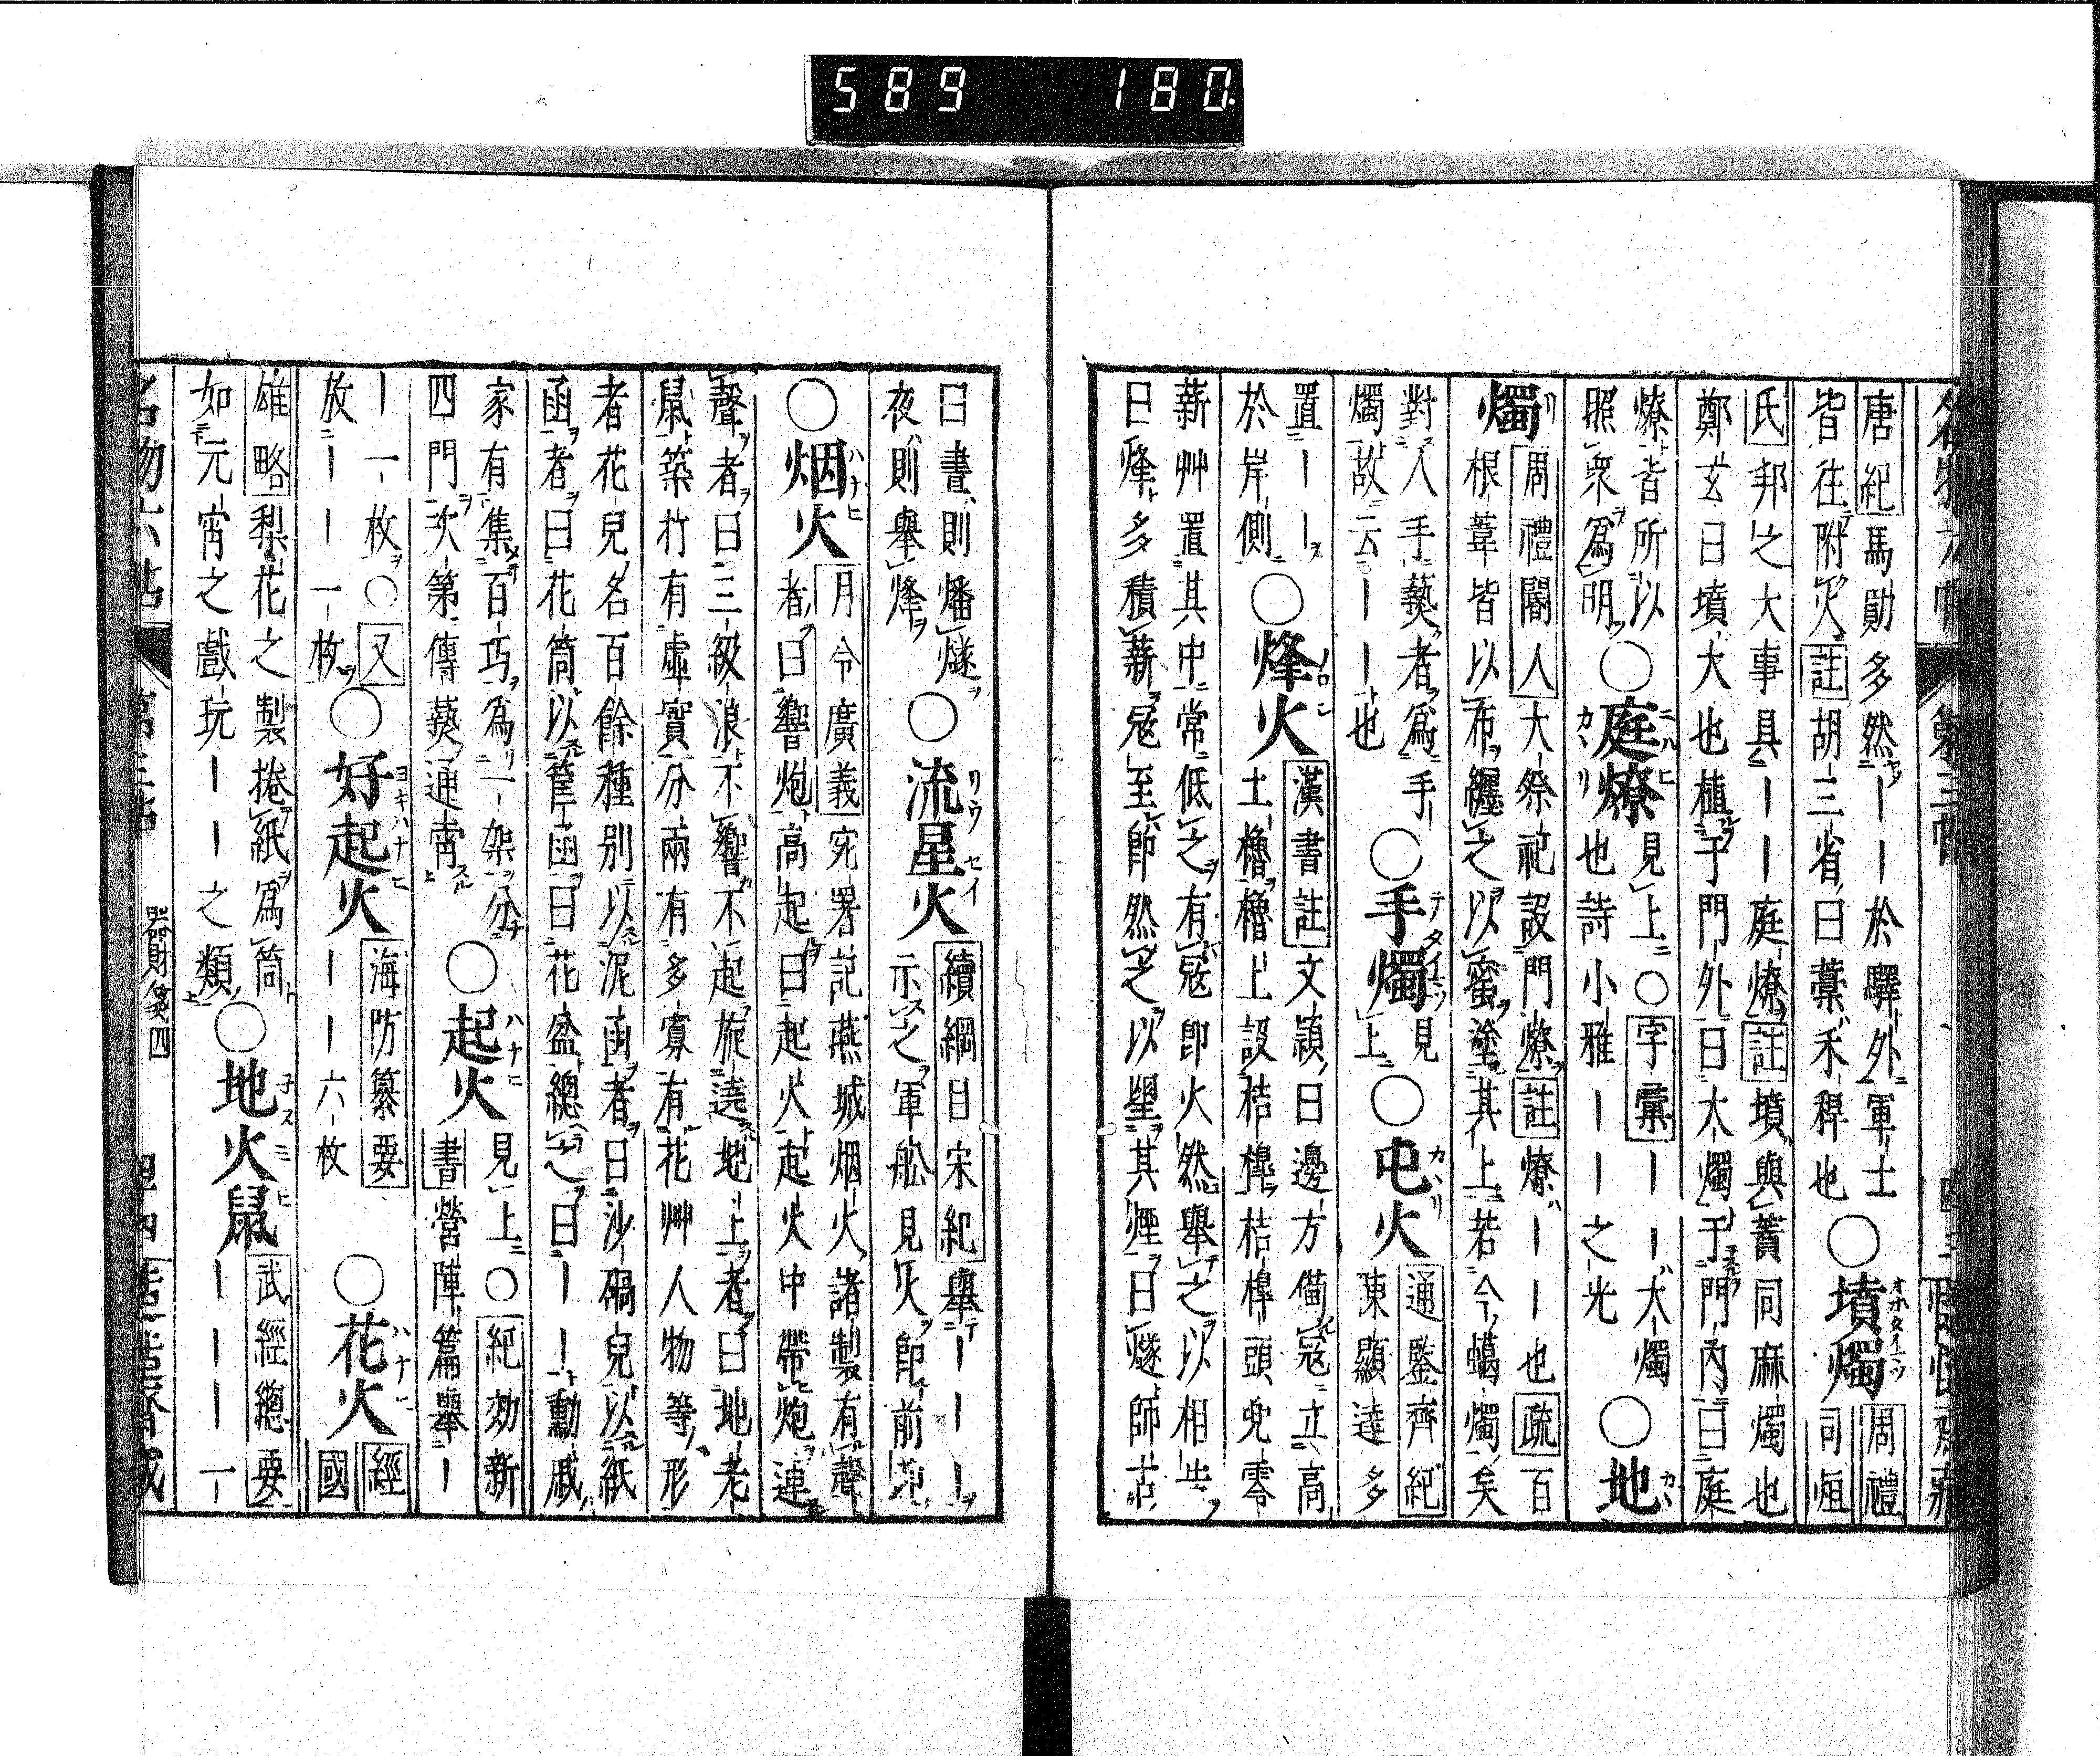 589 180.
唐紀馬勛多然ーー於驛外軍士
皆往附火註胡三省曰藁禾稈也○墳燭周禮司烜
氏邦之大事具ーー庭燎註墳與蕡同麻燭也
鄭玄曰墳大也植于門外曰大燭于門內曰庭
燎皆所以
照衆爲明○庭燎見上○字彙ーー大燭
也詩小雅ーー之光○地
燭周禮閽人大祭祀設門燎註燎ーー也疏百
根葦皆以布纏之以蜜塗其上若今蠟燭矣
對人手執者爲手
燭故云ーー也○手燭見上○屯火通鑑齊紀
陳顯達多
置ーー
於岸側○烽火漢書註文穎曰邊方備寇立高
土櫓櫓上設桔槹桔槹頭兜零
薪艸置其中常低之有寇即火然舉之以相告
曰烽多積薪寇至即然之以望其煙曰燧師古
曰晝則燔燧
夜則舉烽○流星火續綱目宋紀舉ーーー
示之軍舩見火即前
○烟火月令廣義宛署記燕城烟火諸製有聲
者曰響炮高起曰起火起火中帶炮連
聲者曰三級浪不響不起旋遶地上者曰地老
鼠築打有虛實分兩有多寡有花艸人物等形
者花兒名百餘種別以泥函者曰沙鍋兒以紙
函者曰花筒以筐函曰花盆總之曰ーー勳戚
家有集百巧爲一架分
四門次第傳爇通宵○起火見上○紀効新
書營陣篇舉ー
ー一枚○又
放ーーー一枚○好起火海防纂要
ーーー六枚○花火經
國
雄略梨花之製捲紙爲筒
如元宵之戲玩ーー之類○地火鼠武經總要
ーーーー一ー
器財箋四